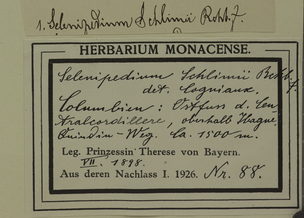 1. Selenipedium Schlimii Rchb. f.
HERBARIUM MONACENSE.
Selenipedium Schlimii Rchb. f.
det. Cogniaux.
Columbien: Ostfuss d. Cen
tralcordillere, oberhalb Ibagué
Quindiu-Weg. Ca. 1500 m.
Leg. Prinzessin Therese von Bayern.
VII. 1898.
Aus deren Nachlass I. 1926. Nr. 88.